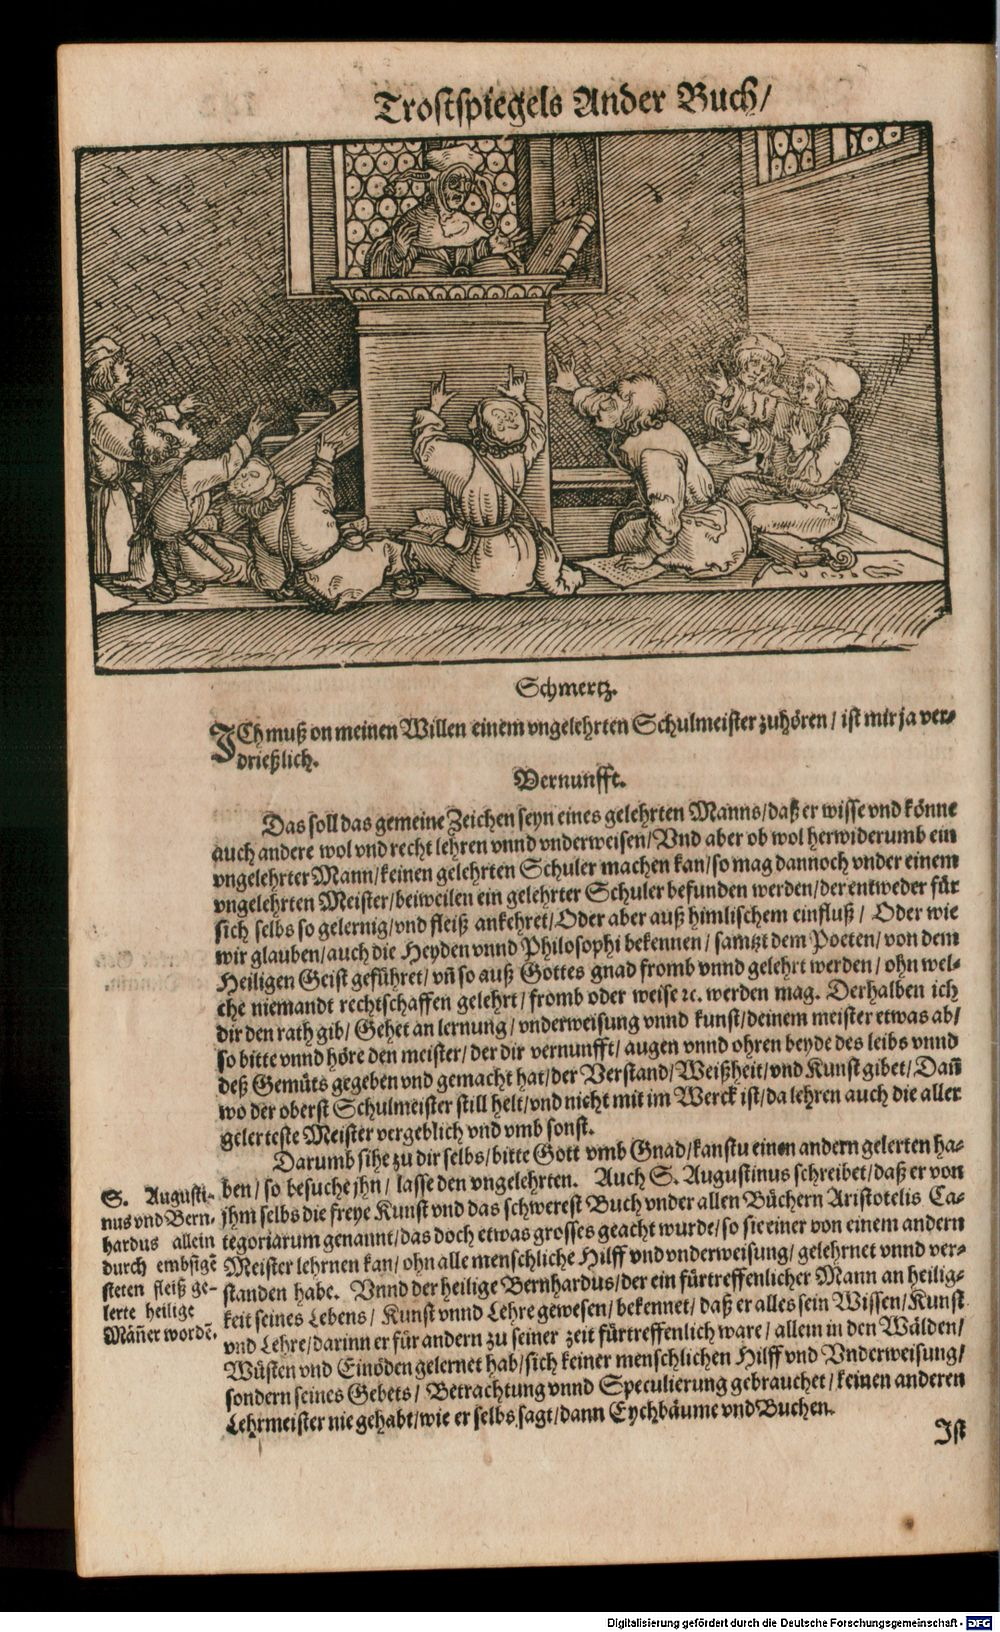 Trostspiegels Ander Buch/
Schmertz.
ICh muß on meinen Willen einem vngelehrten Schulmeister zuhören/ ist mir ja ver-
drießlich.
Vernunfft.
Das soll das gemeine Zeichen seyn eines gelehrten Manns/ daß er wisse vnd könne
auch andere wol vnd recht lehren vnnd vnderweisen/ Vnd aber ob wol herwiderumb ein
vngelehrter Mann/ keinen gelehrten Schuler machen kan/ so mag dannoch vnder einem
vngelehrten Meister/ beiweilen ein gelehrter Schuler befunden werden/ der entweder für
sich selbs so gelernig/ vnd fleiß ankehret/ Oder aber auß himlischem einfluß/ Oder wie
wir glauben/ auch die Heyden vnnd Philosophi bekennen/ samtzt dem Poeten/ von dem
Heiligen Geist geführet/ vñ so auß Gottes gnad fromb vnnd gelehrt werden/ ohn wel-
che niemandt rechtschaffen gelehrt/ fromb oder weise ꝛc. werden mag. Derhalben ich
dir den rath gib/ Gehet an lernung/ vnderweisung vnnd kunst/ deinem meister etwas ab/
so bitte vnnd höre den meister/ der dir vernunfft/ augen vnnd ohren beyde des leibs vnnd
deß Gemüts gegeben vnd gemacht hat/ der Verstand/ Weißheit/ vnd Kunst gibet/ Dañ
wo der oberst Schulmeister still helt/ vnd nicht mit im Werck ist/ da lehren auch die aller
gelerteste Meister vergeblich vnd vmb sonst.
Darumb sihe zu dir selbs/ bitte Gott vmb Gnad/ kanstu einen andern gelerten ha-
ben/ so besuche jhn/ lasse den vngelehrten. Auch S. Augustinus schreibet/ daß er von
jhm selbs die freye Kunst vnd das schwerest Buch vnder allen Büchern Aristotelis Ca-
tegoriarum genannt/ das doch etwas grosses geacht wurde/ so sie einer von einem andern
Meister lehrnen kan/ ohn alle menschliche Hilff vnd vnderweisung/ gelehrnet vnnd ver-
standen habe. Vnnd der heilige Bernhardus/ der ein fürtreffenlicher Mann an heilig-
keit seines Lebens/ Kunst vnnd Lehre gewesen/ bekennet/ daß er alles sein Wissen/ Kunst
vnd Lehre/ darinn er für andern zu seiner zeit fürtreffenlich ware/ allem in den Wälden/
Wüsten vnd Einöden gelernet hab/ sich keiner menschlichen Hilff vnd Vnderweisung/
sondern seines Gebets/ Betrachtung vnnd Speculierung gebrauchet/ keinen anderen
Lehrmeister nie gehabt/ wie er selbs sagt/ dann Eychbäume vnd Buchen.
S. Augusti-
nus vnd Bern,
hardus allein
durch embsigẽ
steten fleiß ge-
lerte heilige
Mäñer wordẽ.
Ist
Digitalisierung gefördert durch die Deutsche Forschungsgemeinschaft - DFG